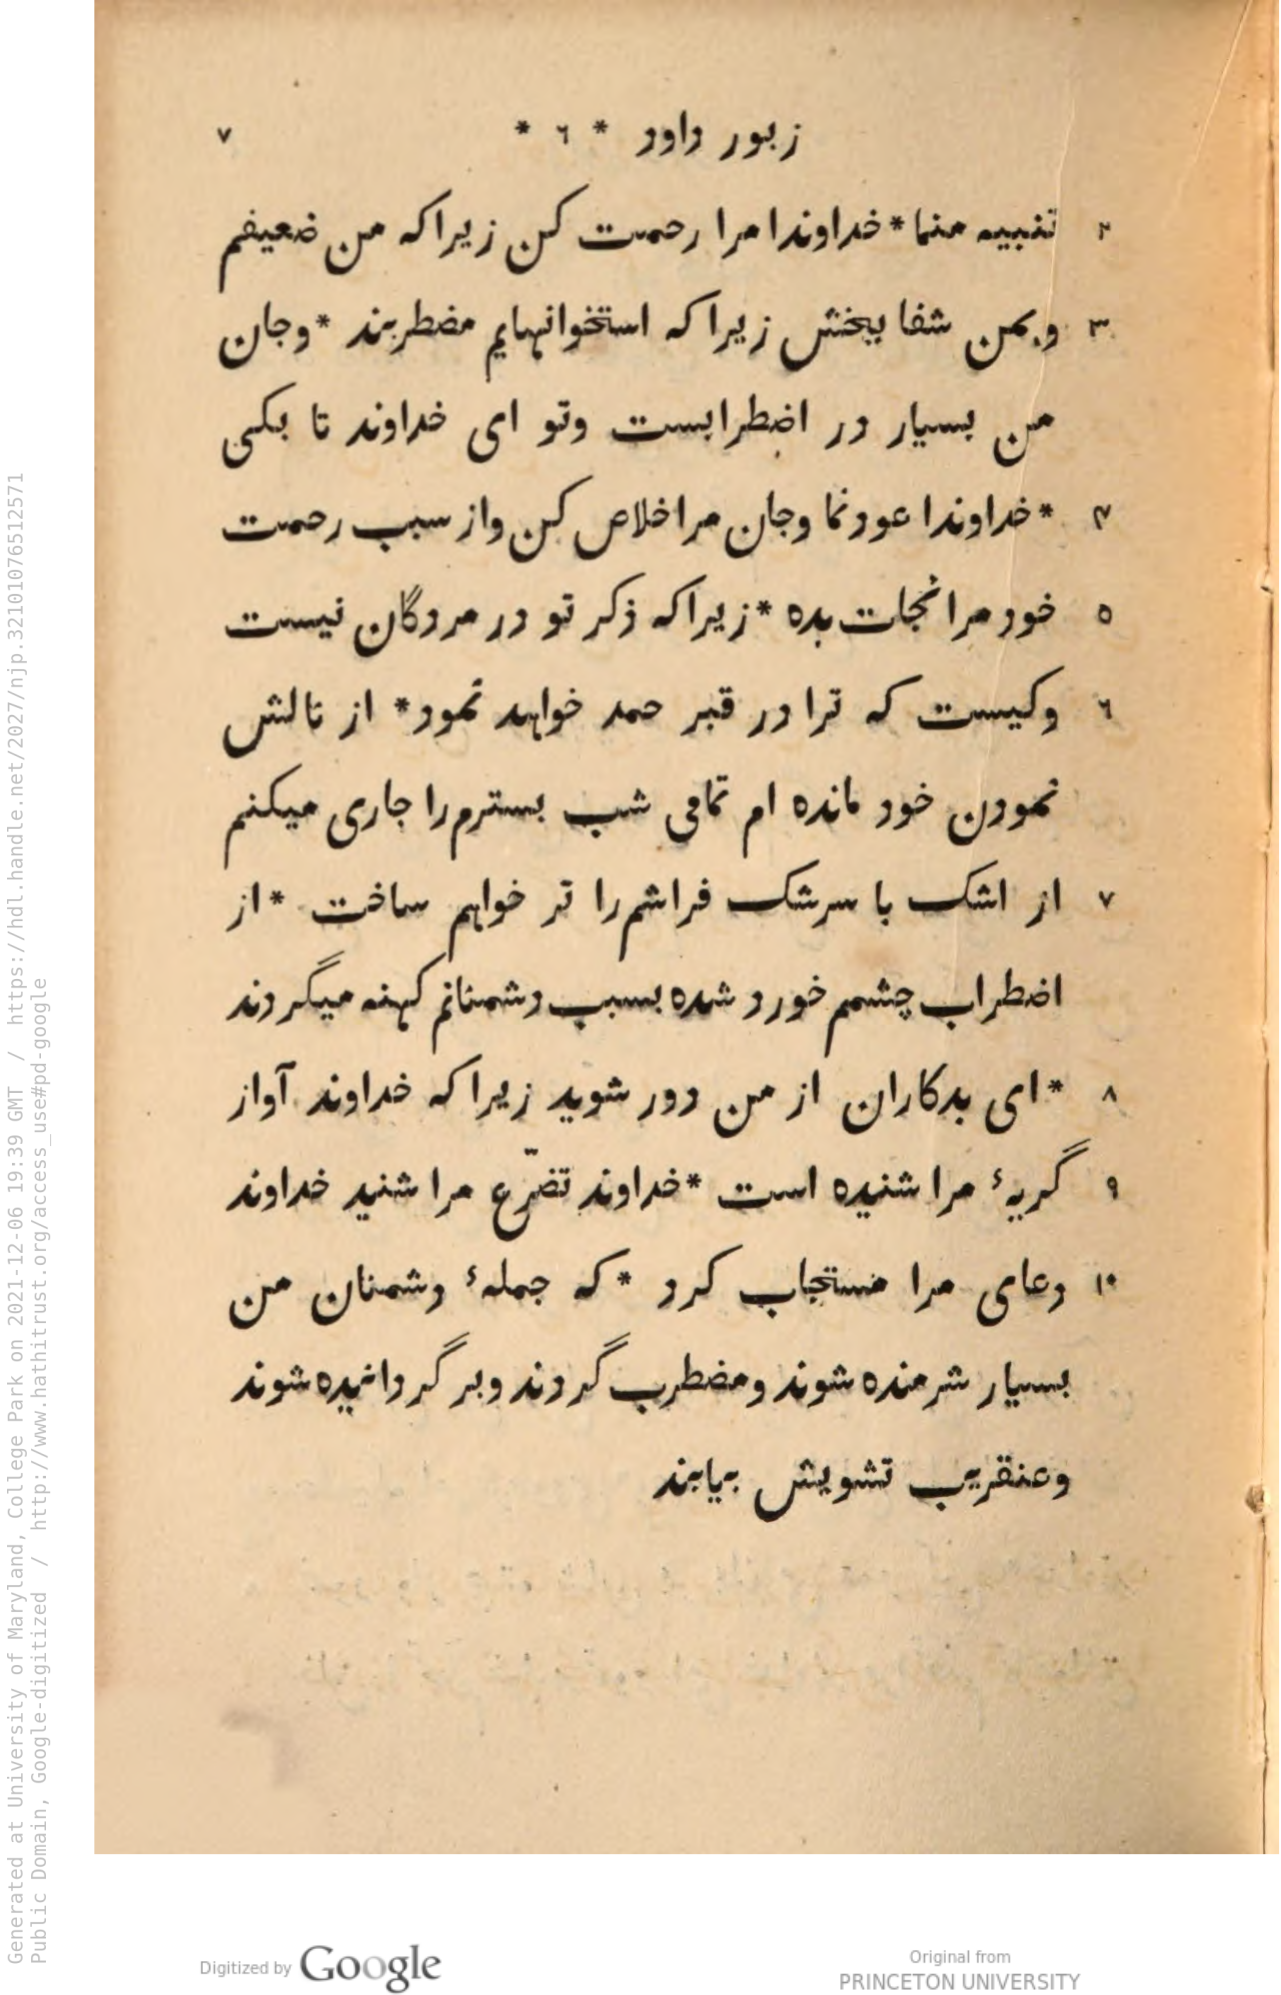 زبور داود * ٦ * ٧
٢ تنبیه منما * خداوندا مرا رحمت کن زیراکه من ضعیفم
٣ وبمن شفا ببخش زیراکه استخوانهایم مضطربند * وجان
من بسیار در اضطرابست وتو ای خداوند تا بکی
۴ * خداوندا عود نما وجان مرا خلاص کن واز سبب رحمت
٥ خود مرا نجات بده * زیراکه ذکر تو در مردگان نیست
٦ وکیست که ترا در قبر حمد خواهد نمود * از نالش
نمودن خود مانده ام تمامی شب بسترم را جاری میکنم
٧ از اشک با سرشک فراشم را تر خواهم ساخت * از
اضطراب چشمم خورد شده بسبب دشمنانم کهنه میگردند
٨ * ای بدکاران از من دور شوید زیراکه خداوند آواز
٩ گریهٔ مرا شنیده است * خداوند تضرّع مرا شنید خداوند
١٠ دعای مرا مستجاب کرد * که جملهٔ دشمنان من
بسیار شرمنده شوند ومضطرب گردند وبر گردانیده شوند
وعنقریب تشویش بیابند
Generated at University of Maryland, College Park on 2021-12-06 19:39 GMT / https://hdl.handle.net/2027/njp.32101076512571
Public Domain, Google-digitized / http://www.hathitrust.org/access_use#pd-google
Digitized by Google
Original from
PRINCETON UNIVERSITY